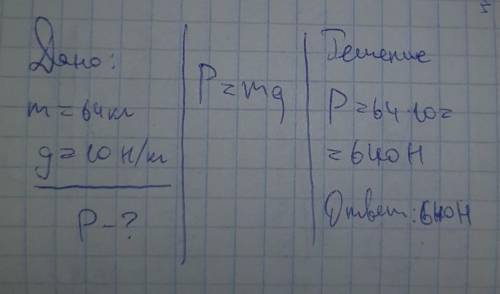 Дано:
m = 64кг
g = 10 Н/кг
P - ?
P = mg
Решение
P = 64 · 10 =
= 640 Н
Ответ: 640 Н